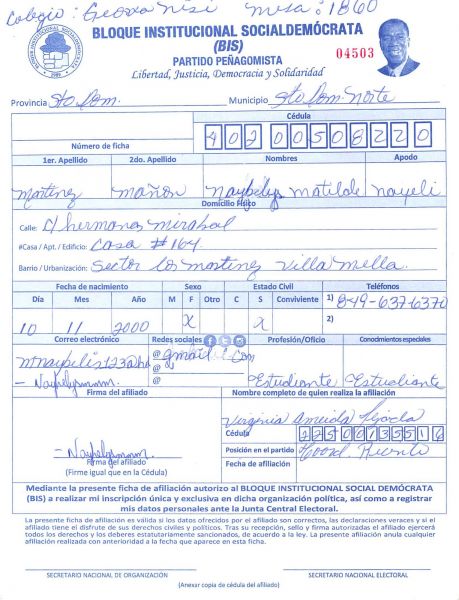 Colegio: Georxa Nisi Mesa: 1860
BLOQUE INSTITUCIONAL SOCIALDEMÓCRATA
(BIS)
PARTIDO PEÑAGOMISTA
Libertad, Justicia, Democracia y Solidaridad
04503
Provincia Sto Dom. Municipio Sto Dom. Norte
Cédula
Número de ficha 40200508220
1er. Apellido 2do. Apellido Nombres Apodo
Martinez Mañon Naybelys Matilde Nayeli
Domicilio Fisico
Calle: C/ hermanas mirabal
#Casa / Apt. / Edificio: Casa #164
Barrio / Urbanización: Sector los martinez villa mella.
Fecha de nacimiento Sexo Estado Civil Teléfonos
Día Mes Año M F Otro C S Conviviente 1) 849-637-6370
10 11 2000 X X 2)
Correo electrónico Redes sociales Profesión/Oficio Conocimientos especiales
@gmail.com
Estudiante Estudiante
Firma del afiliado Nombre completo de quien realiza la afiliación
Virginia Almeida
Cédula
Posición en el partido Coord.
Firma del afiliado Fecha de afiliación
(Firme igual que en la Cédula)
Mediante la presente ficha de afiliación autorizo al BLOQUE INSTITUCIONAL SOCIAL DEMÓCRATA
(BIS) a realizar mi inscripción única y exclusiva en dicha organización política, así como a registrar
mis datos personales ante la Junta Central Electoral.
La presente ficha de afiliación es válida si los datos ofrecidos por el afiliado son correctos, las declaraciones veraces y si el
afiliado tiene el disfrute de sus derechos civiles y políticos. Tras su recepción, sello y firma autorizadas el afiliado ejercerá
todos los derechos y los deberes estatutariamente sancionados, de acuerdo a la ley. La presente afiliación anula cualquier
afiliación realizada con anterioridad a la fecha que aparece en esta ficha.
SECRETARIO NACIONAL DE ORGANIZACIÓN SECRETARIO NACIONAL ELECTORAL
(Anexar copia de cédula del afiliado)